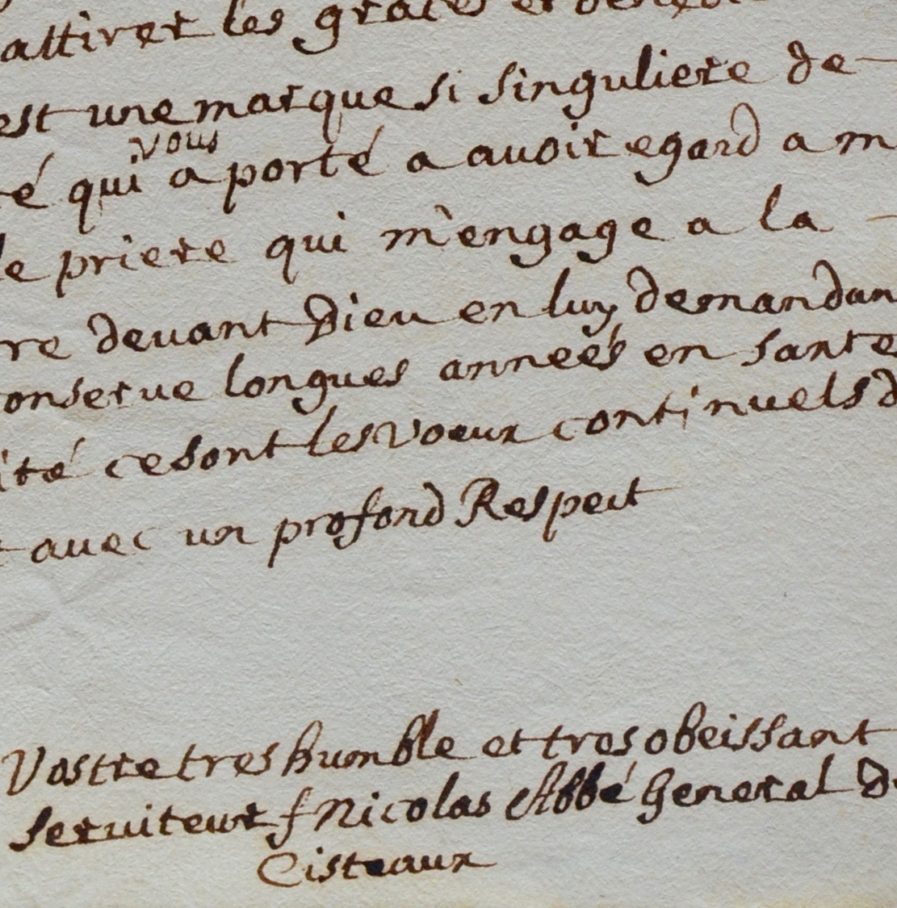 attirer les graces et
est une marque si singuliere de
té qui vous a porté a auoir egard a m
le priere qui m'engage a la
re deuant Dieu en luy demandan
onserue longues anneés en sante
ité ce sont les voeux continuels d
auec un profond Respect
Vostre tres humble et tres obeissant
seruiteur f Nicolas Abbé General de
Cisteaux